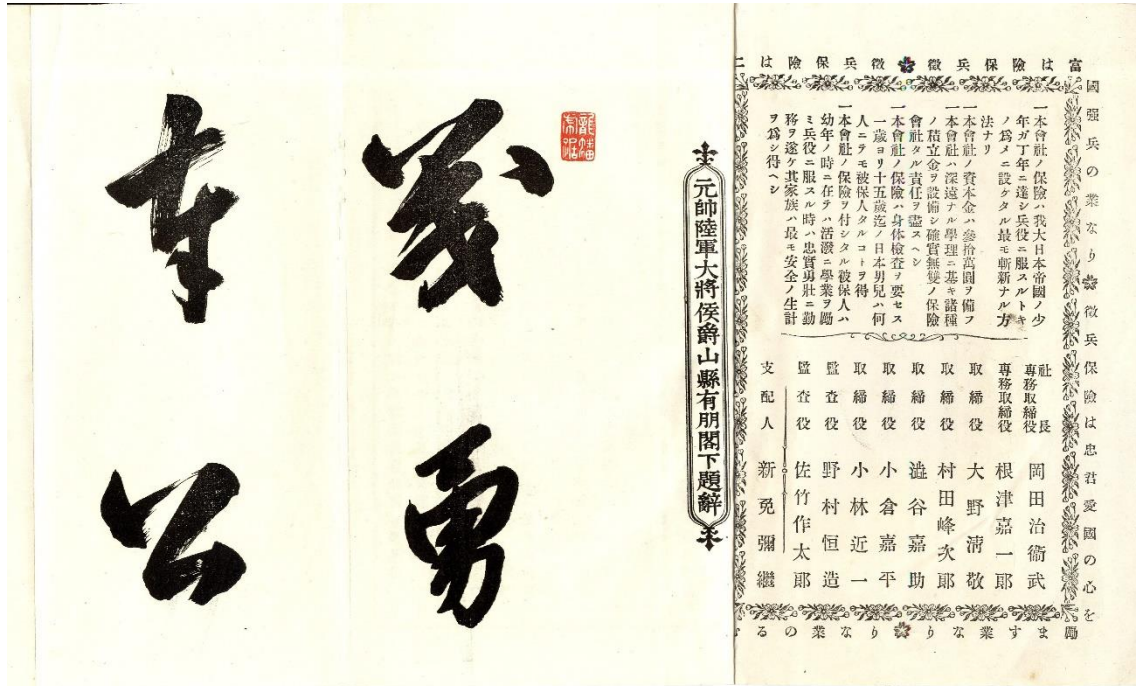 徵兵保險は富國强兵の業なり
徵兵保險は忠君愛國の心を勵ます業なり
徵兵保險は二
るの業なり
一本會社ノ保險ハ我大日本帝國ノ少
年ガ丁年ニ達シ兵役ニ服スルトキ
ノ爲メニ設ケタル最モ斬新ナル方
法ナリ
一本會社ノ資本金ハ參拾萬圓ヲ備フ
一本會社ハ深遠ナル學理ニ基キ諸種
ノ積立金ヲ設備シ確實無雙ノ保險
會社タル責任ヲ盡スヘシ
一本會社ノ保險ハ身体檢査ヲ要セス
一歲ヨリ十五歲迄ノ日本男兒ハ何
人ニテモ被保人タルコトヲ得
一本會社ノ保險ヲ付シタル被保人ハ
幼年ノ時ニ在テハ活潑ニ學業ヲ勵
ミ兵役ニ服スル時ハ忠實勇壯ニ勤
務ヲ遂ケ其家族ハ最モ安全ノ生計
ヲ爲シ得ヘシ
社長專務取締役 岡田治衞武
專務取締役 根津嘉一郎
取締役 大野淸敬
取締役 村田峰次郎
取締役 澁谷嘉助
取締役 小倉嘉平
取締役 小林近一
監査役 野村恒造
監査役 佐竹作太郎
支配人 新免彌繼
元帥陸軍大將侯爵山縣有朋閣下題辭
龍蟠
虎踞
義勇
奉公